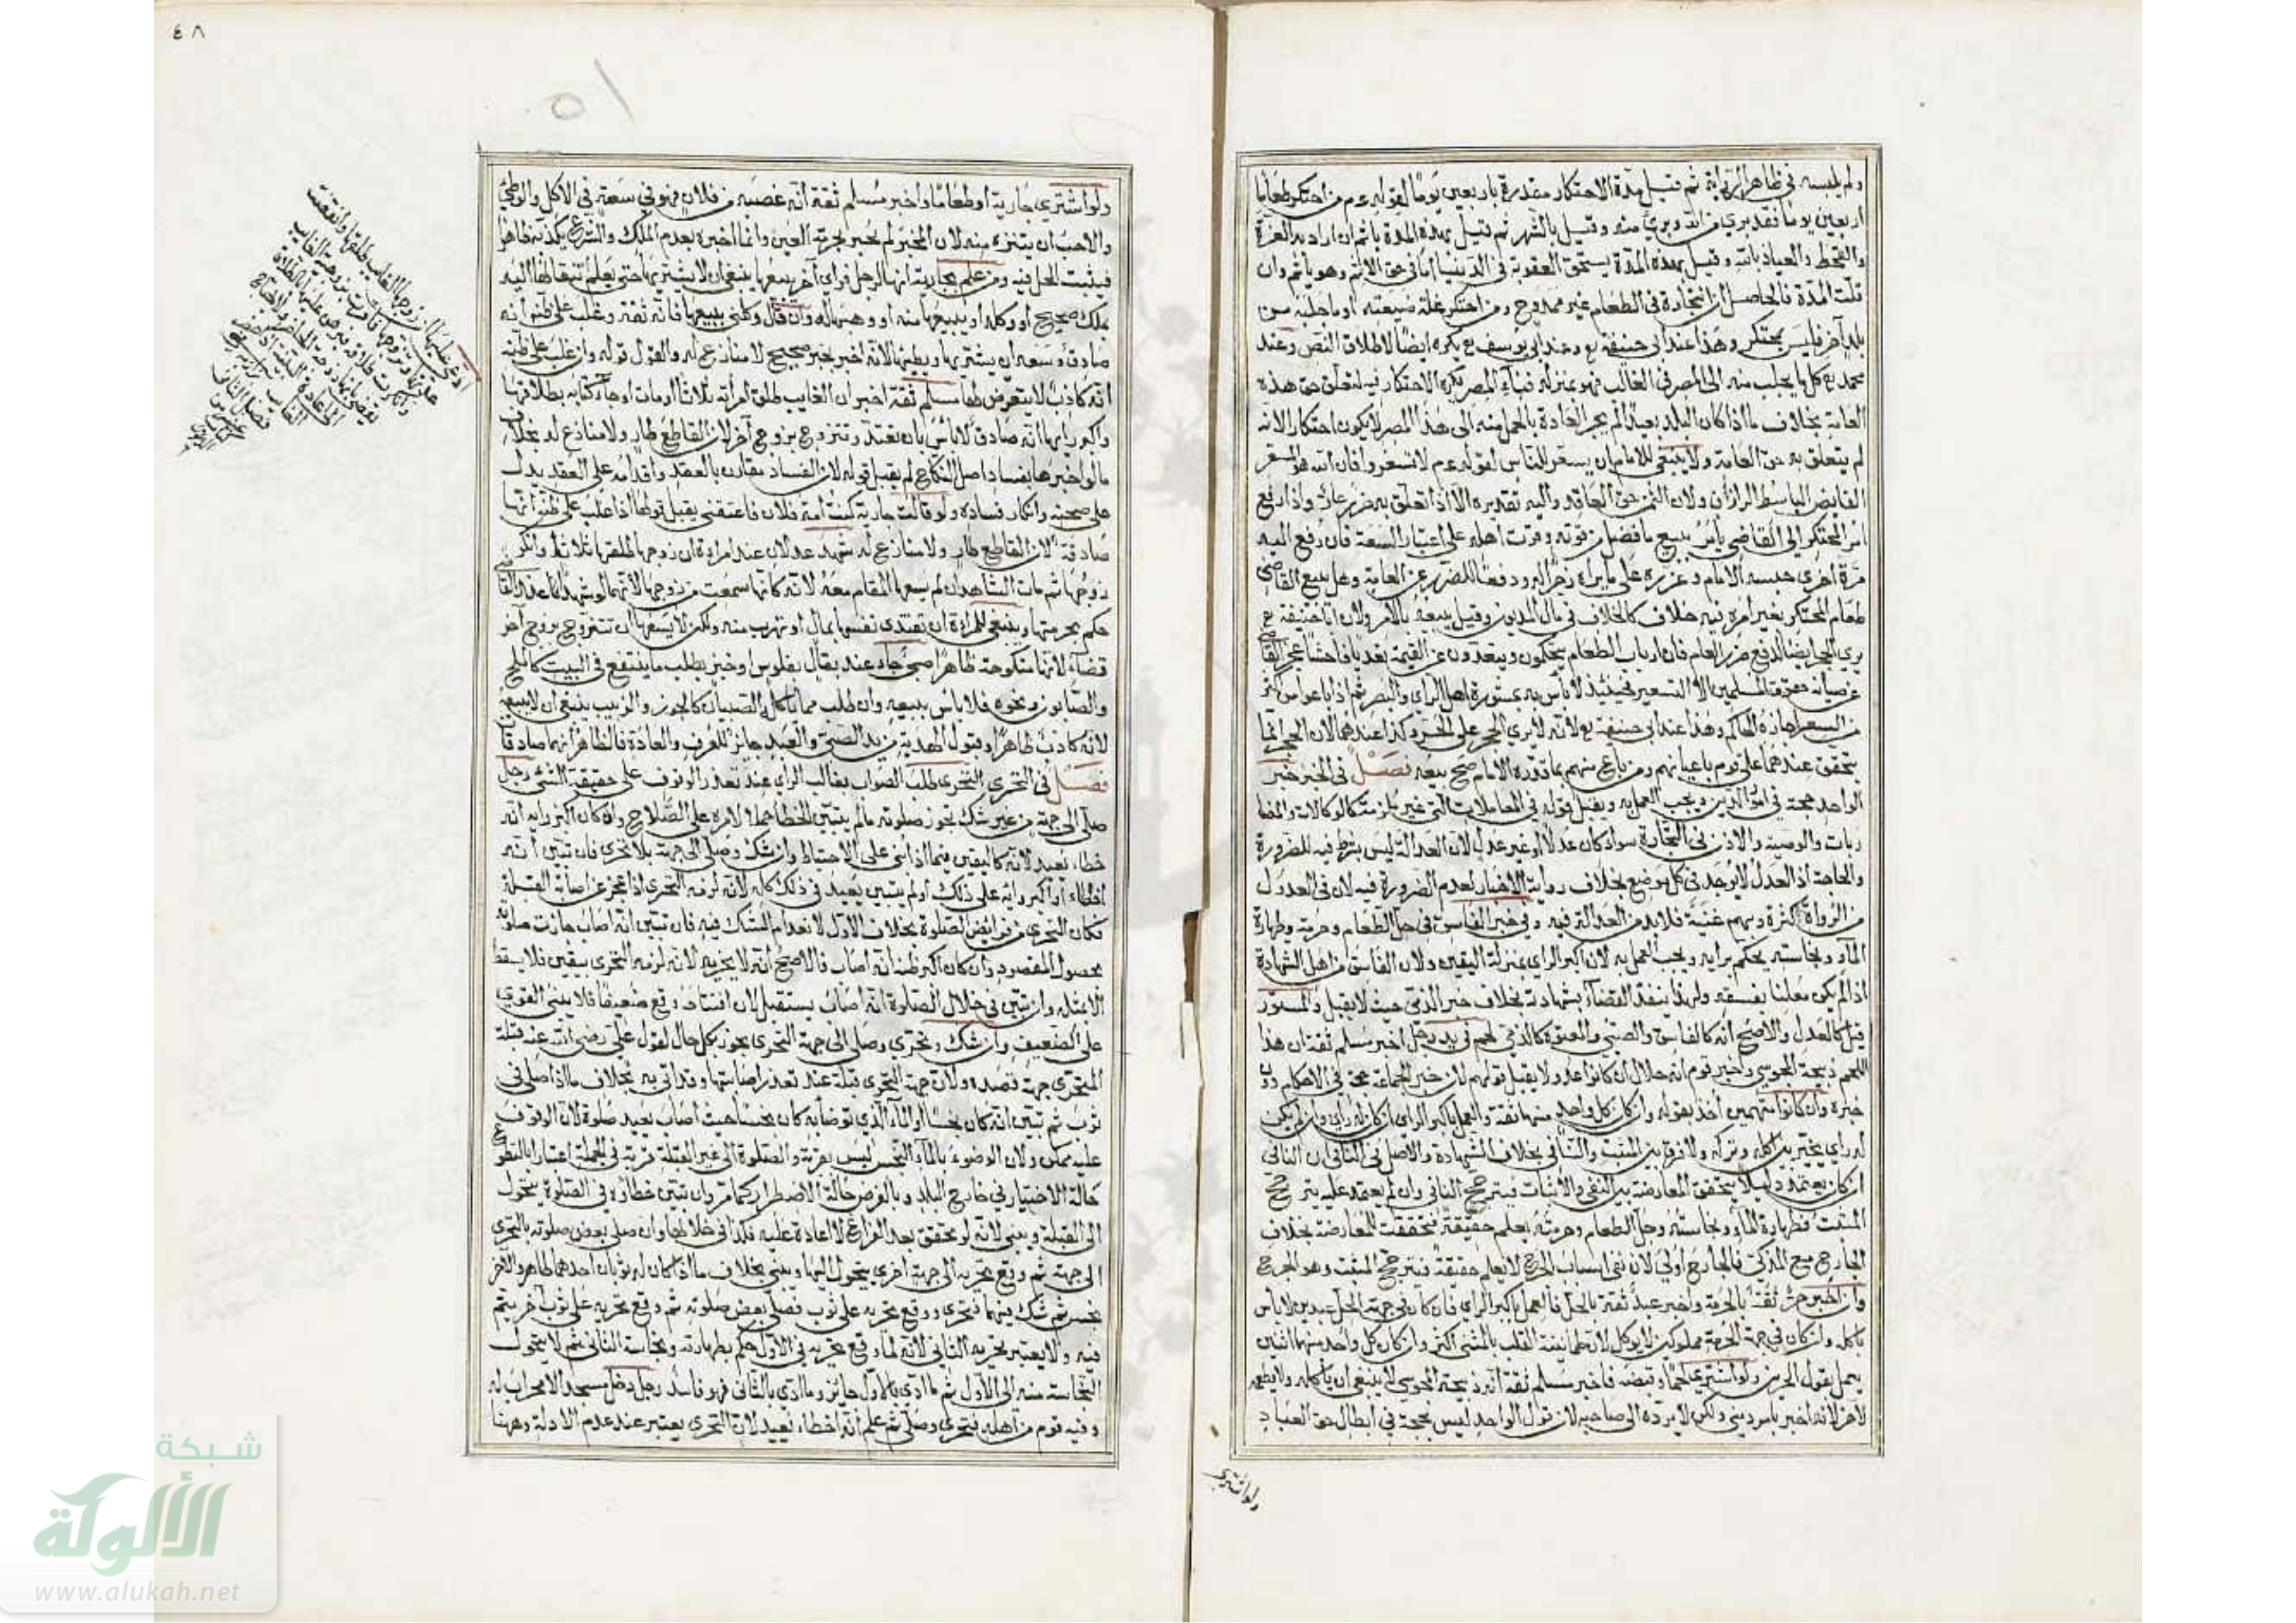 ولم يلبسه في ظاهر الرواية ثم قيل مدة الاحتكار مقدرة باربعين يوما لقوله عم من احتكر طعاما
اربعين يوما فقد برئ من الله وبرئ منه وقيل بالشهر ثم قيل بهذه المدة ياثم ان اراد به العزة
والقحط والعياذ بالله وقيل بهذه المدة يستحق العقوبة في الدنيا اما في حق الاثم وهو ياثم وان
قلت المدة فالحاصل ان التجارة في الطعام غير ممدوح ومن احتكر غلة ضيعته او ما جلبه من
بلد آخر فليس بمحتكر وهذا عند ابي حنيفة وعند ابي يوسف يكره ايضا لاطلاق النص وعند
محمد كل ما يجلب منه الى المصر في الغالب فهو بمنزلة فناء المصر يكره الاحتكار فيه لتعلق حق هذه
العامة بخلاف ما اذا كان البلد بعيدا لم يجر العادة بالحمل منه الى هذا المصر لا يكون احتكارا لانه
لم يتعلق به حق العامة ولا ينبغي للامام ان يسعر للناس لقوله عم لا تسعروا فان الله هو المسعر
القابض الباسط الرازق ولان الثمن حق العاقد واليه تقديره الا اذا تعلق به ضرر عام واذا رفع
امر المحتكر الى القاضي يامر ببيع ما فضل من قوته وقوت اهله على اعتبار السعة فان رفع اليه
مرة اخرى حبسه الامام وعزره على ما يراه زجرا له ودفعا للضرر عن العامة وهل يبيع القاضي
طعام المحتكر بغير امره فيه خلاف كالخلاف في مال المديون وقيل يبيعه بالامر ولان ابا حنيفة
يرى الحجر ايضا لدفع ضرر العام فان ارباب الطعام يتحكمون ويتعدون عن القيمة تعديا فاحشا عجز القاضي
عن صيانة حقوق المسلمين الا التسعير فحينئذ لا باس به بمشورة اهل الراي والبصر ثم اذا باعوا باكثر
من السعر اجازه الحاكم وهذا عند ابي حنيفة لانه لا يرى الحجر على الحر وكذا عندهما لان الحجر انما
يتحقق عندهما على قوم باعيانهم ومن باع منهم بما قدره الامام صح بيعه فصل في الخبر خبر
الواحد حجة في امور الدين ويجب العمل به ويقبل قوله في المعاملات التي غير ملزمة كالوكالات والمضا
ربات والوصية والاذن في التجارة سواء كان عدلا او غير عدل لان العدالة ليس بشرط فيه للضرورة
والحاجة اذ العدل لا يوجد في كل موضع بخلاف رواية الاخبار لعدم الضرورة فيه لان في العدول
من الرواة كثرة وبهم غنية فلا بد من العدالة فيه وفي خبر الفاسق في حل الطعام وحرمته وطهارة
الماء ونجاسته يحكم برايه ويجب العمل به لان اكبر الراي بمنزلة اليقين ولان الفاسق من اهل الشهادة
اذا لم يكن معلنا بفسقه ولهذا ينفذ القضاء بشهادته بخلاف خبر الذمي حيث لا يقبل والمستور
قيل كالعدل والاصح انه كالفاسق والصبي والمعتوه كالذمي لحم في يد رجل اخبر مسلم ثقة ان هذا
اللحم ذبيحة المجوسي واخبر قوم انه حلال ان كانوا عدولا يقبل قولهم لان خبر الجماعة حجة في الاحكام دون
خبره وان كانوا متهمين اخذ بقوله وان كان كل واحد منهما ثقة والعمل باكبر الراي ان كان له راي وان لم يكن
له راي يخير بين اكله وتركه ولا فرق بين المثبت والنافي بخلاف الشهادة والاصل في النافي ان النافي
ان كان يعتمد دليلا يتحقق المعارضة بين النفي والاثبات فيترجح النافي وان لم يعتمد عليه يترجح
المثبت فطهارة الماء ونجاسته وحل الطعام وحرمته يعلم حقيقة فتحققت المعارضة بخلاف
الجارح مع المزكي فالجارح اولى لان نفي اسباب الجرح لا يعلم حقيقة فيترجح المثبت وهو الجرح
وان اخبر حر ثقة بالحرمة واخبر عبد ثقة بالحل فالعمل باكبر الراي فان كان في جهة الحل عبدين لا باس
باكله وان كان في جهة الحرمة مملوكين لا يؤكل لان طمانينة القلب بالمثنى اكثر وان كان كل واحد منهما اثنين
يعمل بقول الحرين ولو اشترى لحما وقبضه فاخبر مسلم ثقة انه ذبيحة المجوسي لا ينبغي ان ياكله ولا يطعمه
لانه اخبر بامر ديني ولكن لا يرده الى صاحبه لان قول الواحد ليس بحجة في ابطال حق العباد
ولو اشترى
٤٨
٥١
ولو اشترى جارية او طعاما واخبر مسلم ثقة انه غصبه من فلان فهو في سعة في الاكل والوطئ
والاحب ان يتنزه منه لان المخبر لم يخبر بحرمة العين وانما اخبره بعدم الملك والشرع يكذبه ظاهرا
فيثبت الحل فيه ومن علم بجارية انها لرجل فراى آخر يبيعها ينبغي ان لا يشتريها حتى يعلم انتقالها اليه
بملك صحيح او وكله او يبيعها منه او وهبها له وان قال وكلني ببيعها فانه ثقة وغلب على ظنه انه
صادق وسعه ان يشتريها ويطئها لانه اخبر بخبر صحيح لا منازع له والقول قوله وان غلب على ظنه
انه كاذب لا يتعرض لها مسلم ثقة اخبر ان الغايب طلق امراته ثلاثا او مات او جاء كتابه بطلاقها
واكبر رايها انه صادق لا باس بان تعتد وتتزوج بزوج آخر لان القاطع طار ولا منازع له بخلاف
ما لو اخبرها بفساد اصل النكاح لم يقبل قوله لان الفساد مقارن بالعقد واقدامه على العقد يدل
على صحته وانكار فساده ولو قالت جارية كنت امة فلان فاعتقني يقبل قولها اذا غلب على ظنه انها
صادقة لان القاطع طار ولا منازع له شهد عدلان عند امراة ان زوجها طلقها ثلاثا وانكر
زوجها ثم مات الشاهدان لم يسعها المقام معه لانه كانها سمعت من زوجها لانهما لو شهدا عند القاضي
حكم بحرمتها وينبغي للمراة ان تفتدي نفسها بمال او تهرب منه ولكن لا يسعها ان تتزوج بزوج آخر
قضاء لانها منكوحة ظاهرا صبي جاء عند بقال بفلوس او خبز يطلب ما ينتفع في البيت كالملح
والصابون ونحوه فلا باس ببيعه وان طلب مما ياكل الصبيان كالجوز والزبيب ينبغي ان لا يبيعه
لانه كاذب ظاهرا وقبول الهدية من يد الصبي والعبد جائز للعرف والعادة فالظاهر انهما صادقان
فصل في التحري التحري طلب الصواب بغالب الراي عند تعذر الوقوف على حقيقة الشئ رجل
صلى الى جهة من غير شك تجوز صلوته ما لم يتبين الخطا حملا لامره على الصلاح وان كان اكبر رايه انه
خطاء يعيد لانه كاليقين فيما اذا بني على الاحتياط وان شك وصلى الى جهة بلا تحري فان تبين انه
اخطاء او اكبر رايه على ذلك او لم يتبين يعيد في ذلك كله لانه لزمه التحري اذا عجز عن اصابة القبلة
فكان التحري من فرائض الصلوة بخلاف الاول لانعدام الشك فيه فان تبين انه اصاب جازت صلوته
بحصول المقصود وان كان اكبر ظنه انه اصاب فالاصح انه لا يجزيه لانه لزمه التحري بيقين فلا يسقط
الا بمثله وان تبين في خلال الصلوة انه اصاب يستقبل لان افتتاحه وقع ضعيفا فلا يبنى القوي
على الضعيف وان شك وتحرى وصلى الى جهة التحري يجوز بكل حال لقول علي رضي الله عنه قبلة
المتحري جهة قصده ولان جهة التحري قبلة عند تعذر اصابتها وقد اتى به بخلاف ما اذا صلى في
ثوب ثم تبين انه كان نجسا او الماء الذي توضا به كان نجسا حيث اصاب يعيد صلوة لان الوقوف
عليه ممكن ولان الوضوء بالماء النجس ليس بقربة والصلوة الى غير القبلة قربة في الجملة اعتبارا بالتطوع
حالة الاختيار في خارج البلد وبالفرض حالة الاضطرار كما مر وان تبين خطاؤه في الصلوة يتحول
الى القبلة ويبني لانه لو تحقق بعد الفراغ لا اعادة عليه فكذا في خلالها وان صلى بعض صلوته بالتحري
الى جهة ثم وقع تحريه الى جهة اخرى يتحول اليها ويبني بخلاف ما اذا كان له ثوبان احدهما طاهر والآخر
نجس ثم شك فيهما فتحرى ووقع تحريه على ثوب فصلى بعض صلوته ثم وقع تحريه على ثوب آخر يتم
فيه ولا يعتبر تحريه الثاني لانه لما وقع تحريه في الاول حكم بطهارته وبنجاسة الثاني ثم لا يتحول
النجاسة منه الى الاول ثم ما ادى بالاول جائز وما ادى بالثاني فهو فاسد رجل دخل مسجدا لا محراب له
وفيه قوم من اهله فتحرى وصلى ثم علم انه اخطاء يعيد لان التحري يعتبر عند عدم الادلة وههنا
شبكة
الألوكة
www.alukah.net